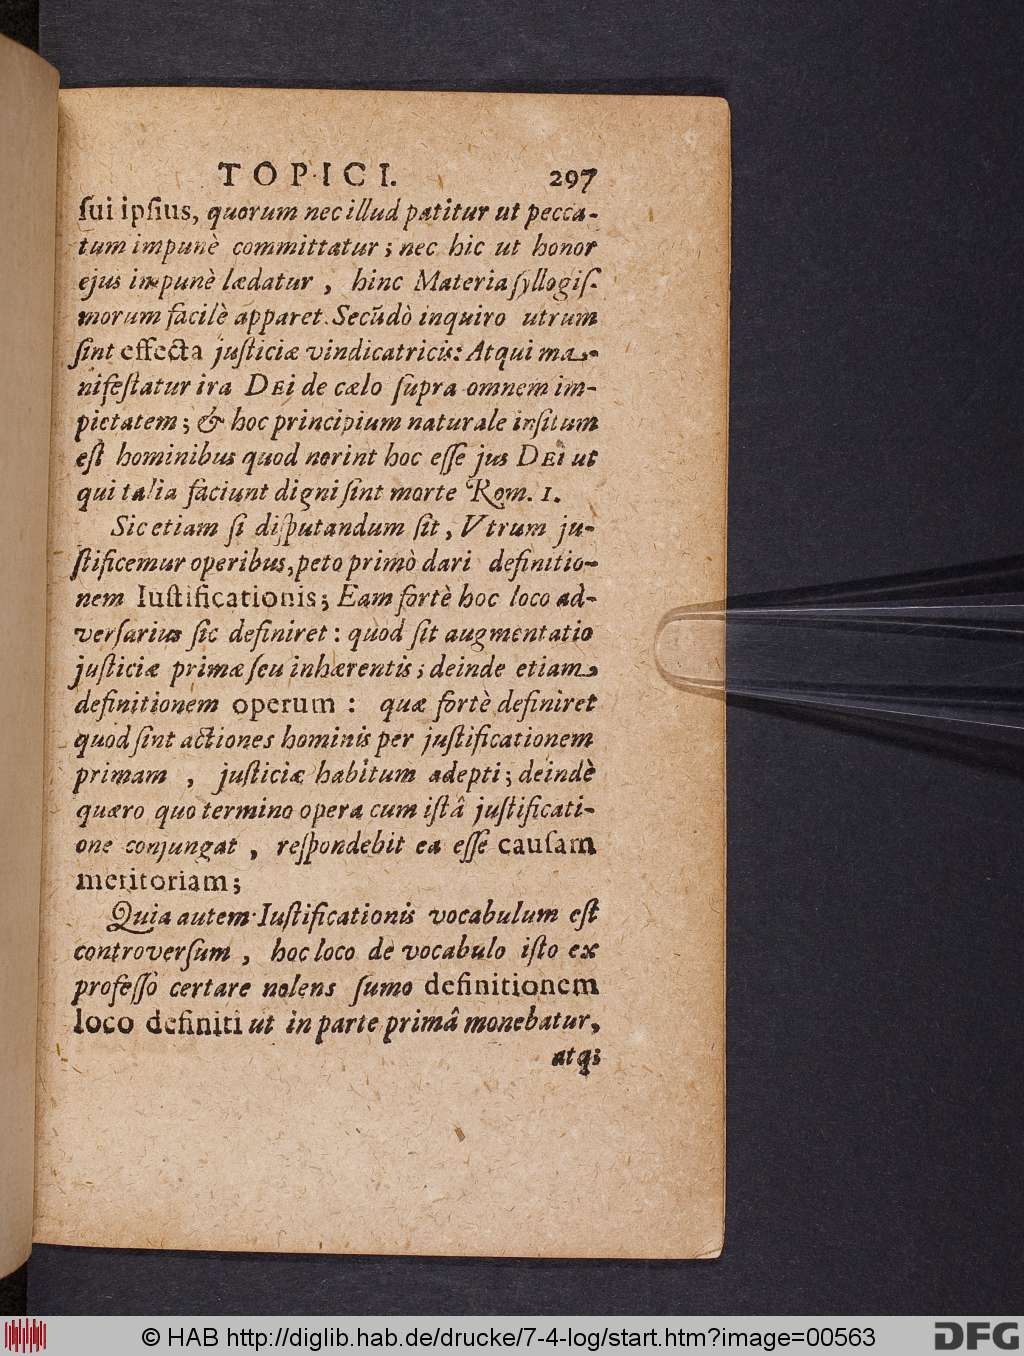 TOPICI. 297
ſui ipſius, quorum nec illud patitur ut pecca-
tum impunè committatur ; nec hic ut honor
ejus impunè lædatur , hinc Materia ſyllogiſ-
morum facilè apparet. Secũdò inquiro utrum
ſint effecta juſticiæ vindicatricis: Atqui ma-
nifeſtatur ira DEI de cælo ſupra omnem im-
pietatem ; & hoc principium naturale inſitum
eſt hominibus quod norint hoc eſſe jus DEI ut
qui talia faciunt digni ſint morte Rom. 1.
Sic etiam ſi diſputandum ſit , Utrum ju-
ſtificemur operibus, peto primò dari definitio-
nem Iuſtificationis; Eam fortè hoc loco ad-
verſarius ſic definiret : quod ſit augmentatio
juſticiæ primæ ſeu inhærentis ; deinde etiam
definitionem operum : quæ fortè definiret
quod ſint actiones hominis per juſtificationem
primam , juſticiæ habitum adepti ; deindè
quæro quo termino opera cum iſtâ juſtificati-
one conjungat , reſpondebit ea eſſe cauſam
meritoriam;
Quia autem Iuſtificationis vocabulum eſt
controverſum , hoc loco de vocabulo iſto ex
profeſſò certare nolens ſumo definitionem
loco definiti ut in parte primâ monebatur,
atq;
© HAB http://diglib.hab.de/drucke/7-4-log/start.htm?image=00563
DFG